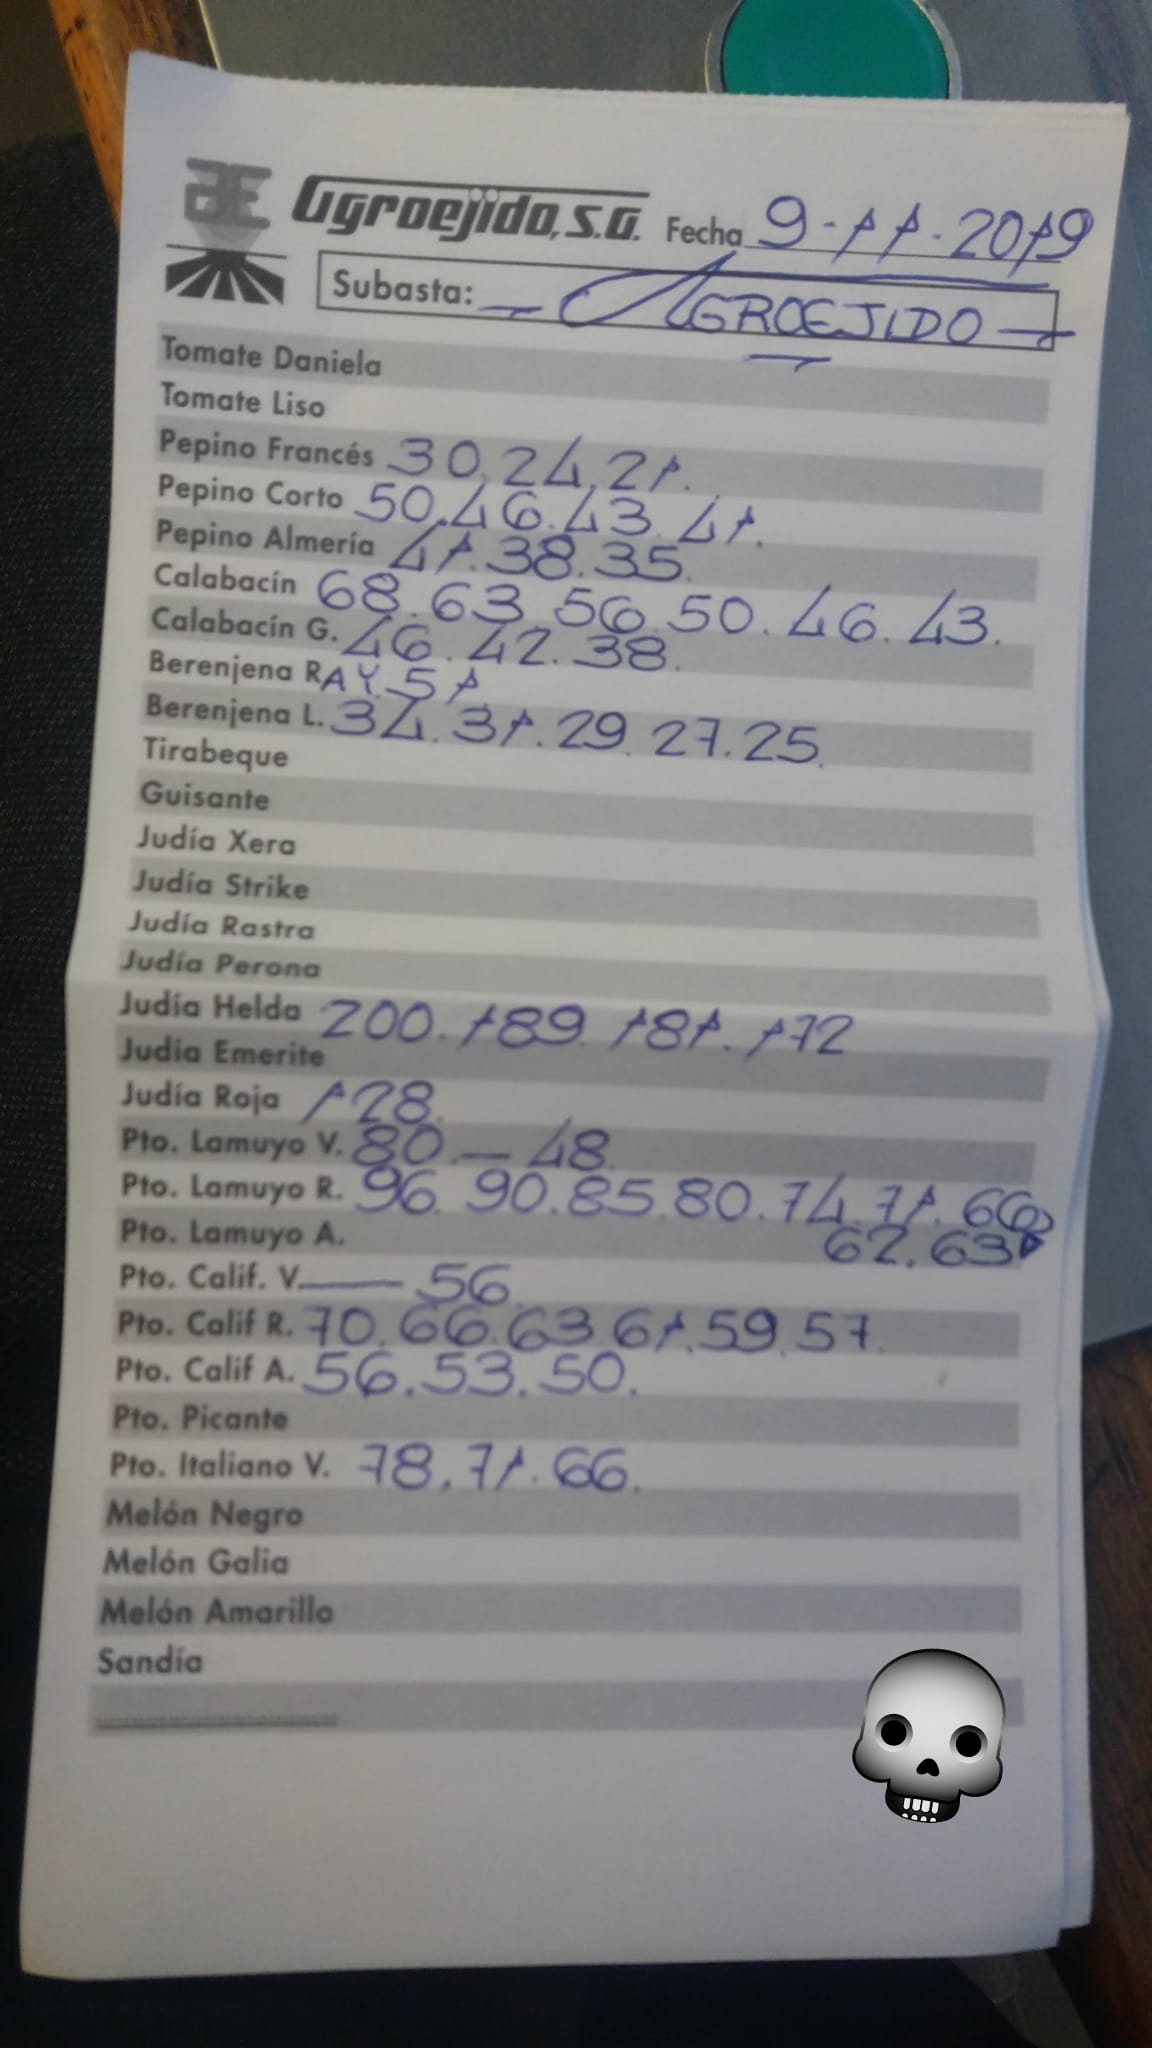 agroejido, S.A. Fecha 9-11-2019
Subasta: AGROEJIDO
Tomate Daniela
Tomate Liso
Pepino Francés 30.24.21.
Pepino Corto 50.46.43.41.
Pepino Almería 41.38.35.
Calabacín 68.63.56.50.46.43.
Calabacín G. 46.42.38.
Berenjena RAY.51
Berenjena L. 34.31.29.27.25.
Tirabeque
Guisante
Judía Xera
Judía Strike
Judía Rastra
Judía Perona
Judía Helda 200.189.181.172
Judía Emerite
Judía Roja 128.
Pto. Lamuyo V. 80 — 48.
Pto. Lamuyo R. 96.90.85.80.74.71.66
Pto. Lamuyo A. 62.63
Pto. Calif. V. — 56
Pto. Calif R. 70.66.63.61.59.57.
Pto. Calif A. 56.53.50.
Pto. Picante
Pto. Italiano V. 78.71.66.
Melón Negro
Melón Galia
Melón Amarillo
Sandía